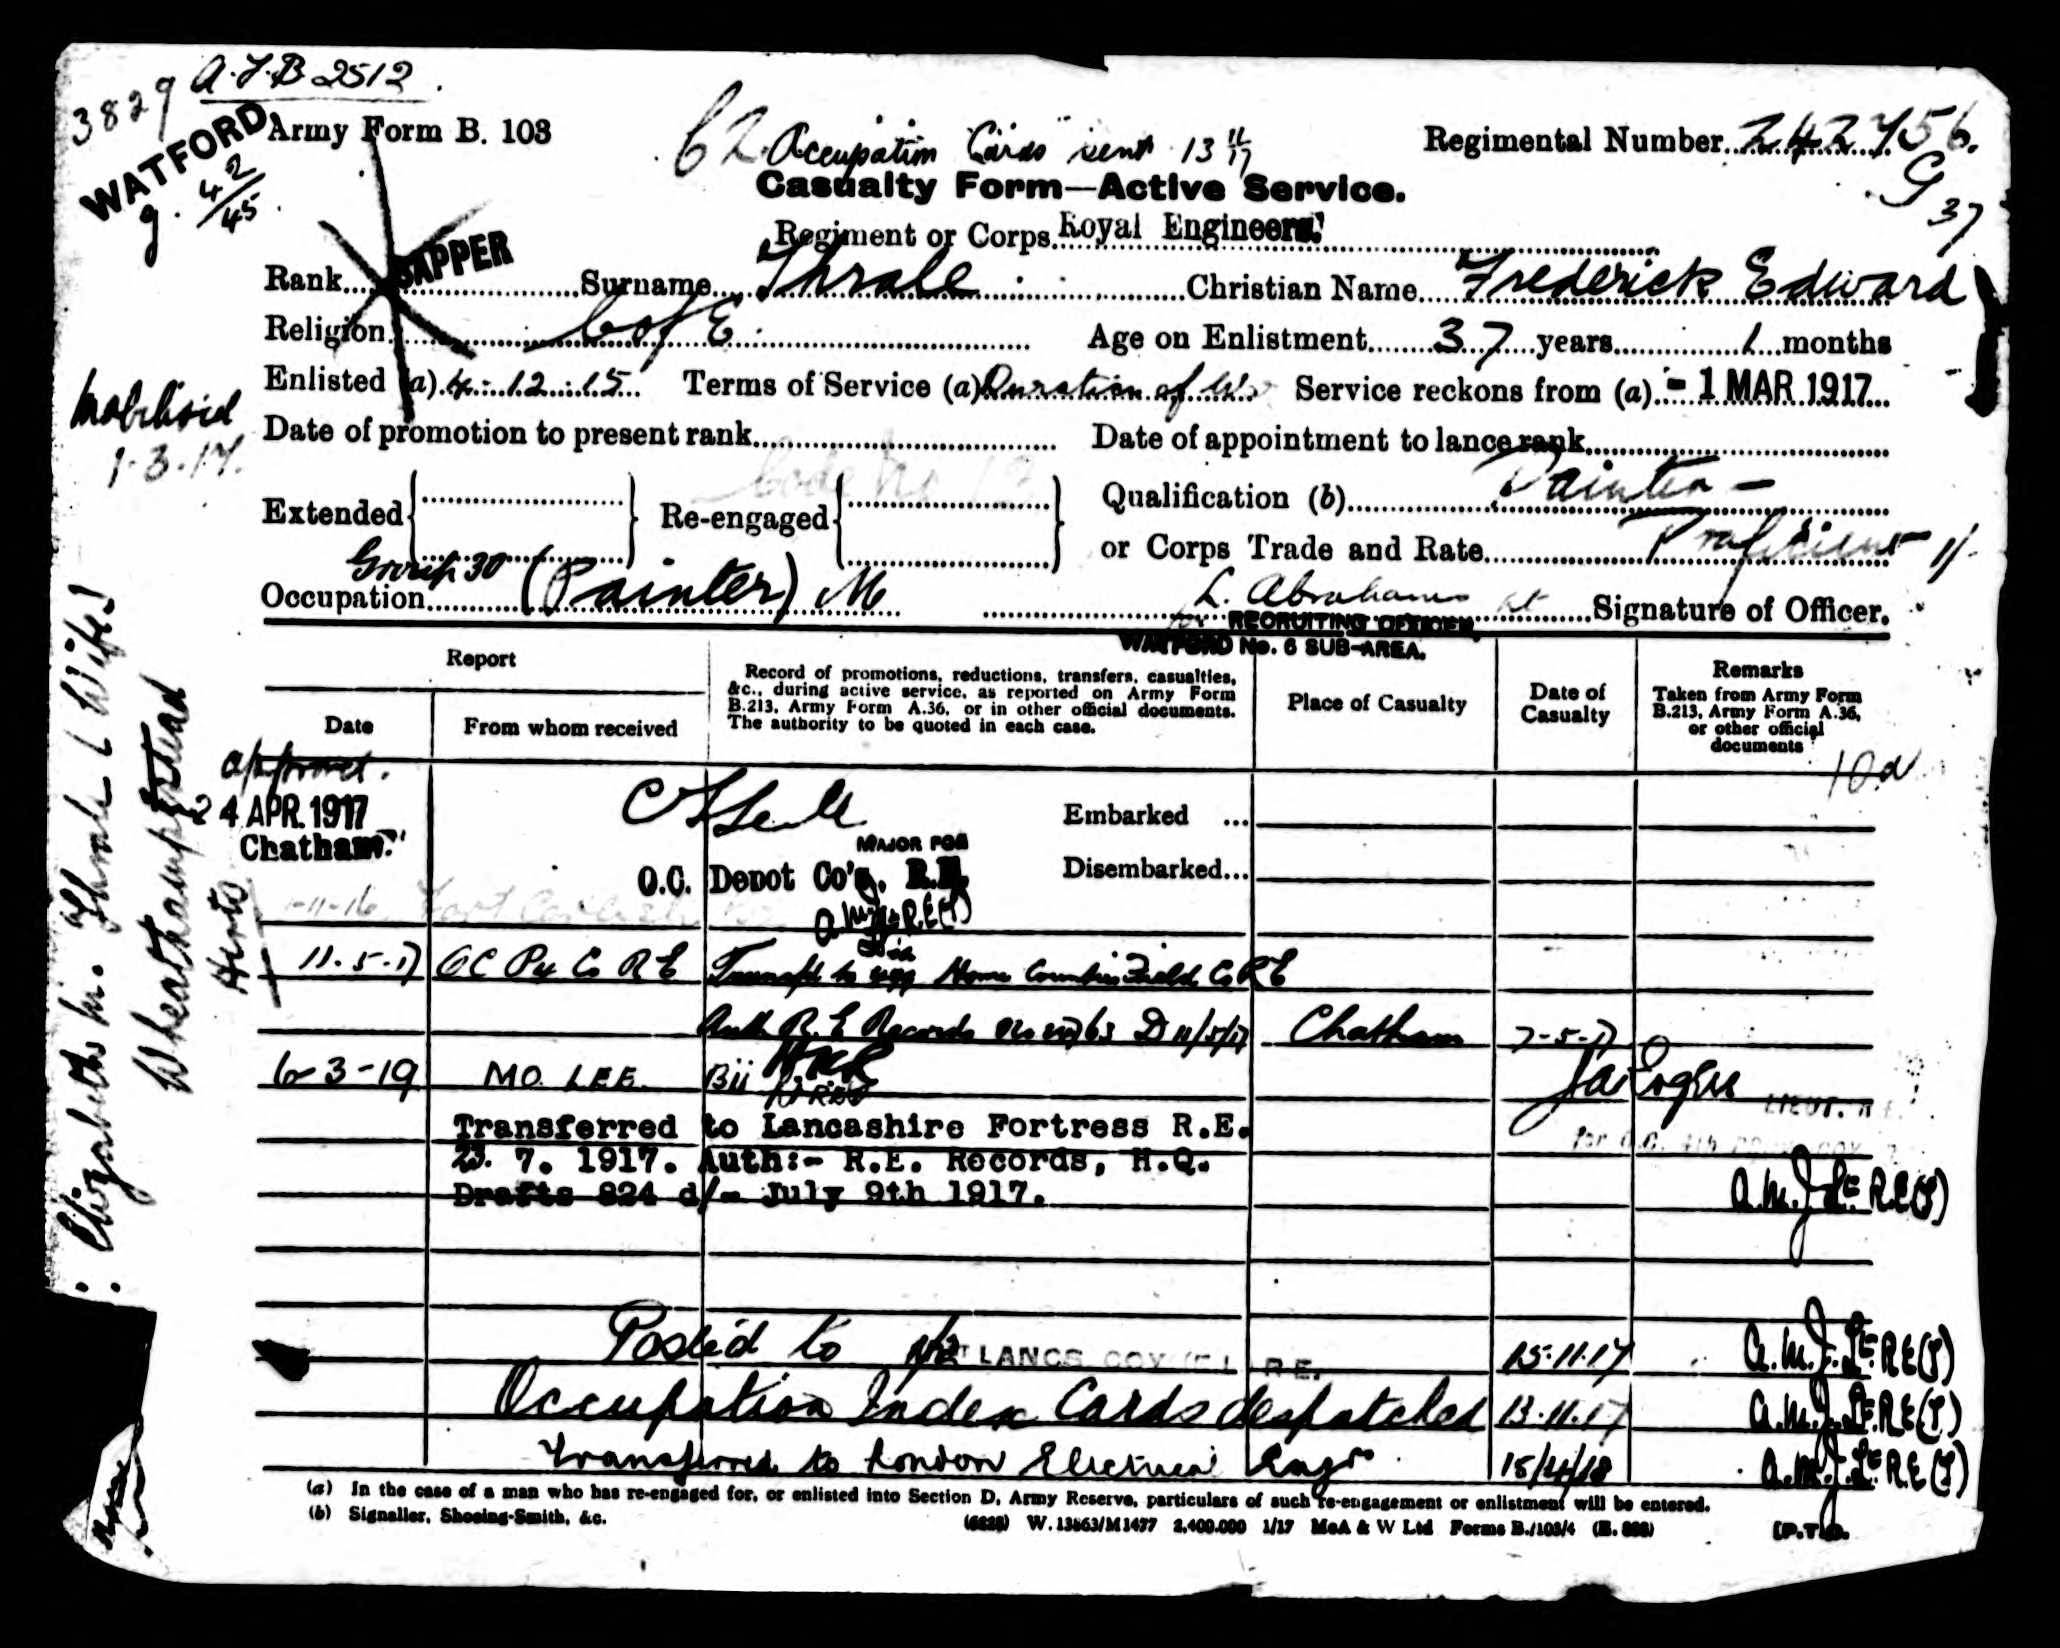 A.F.B 2512.
3829
WATFORD
g. 42/45
Army Form B. 103
62 Occupation Cards sent 13 11/17
Regimental Number 242756.
G 37
Casualty Form—Active Service.
Regiment or Corps Royal Engineers.
Rank SAPPER Surname Thrale Christian Name Frederick Edward
Religion C of E Age on Enlistment 37 years 1 months
Enlisted (a) 4.12.15 Terms of Service (a) Duration of War Service reckons from (a) - 1 MAR 1917
Mobilised
1.3.17.
Date of promotion to present rank Date of appointment to lance rank
Extended Re-engaged Qualification (b) Painter -
or Corps Trade and Rate Proficient 1/-
Group 30
Occupation (Painter) M L. Abrahams Lt Signature of Officer.
for RECRUITING OFFICER,
WATFORD No. 6 SUB-AREA.
Elizabeth M. Thrale (Wife)
Wheathampstead
Herts
Report
Date
From whom received
Record of promotions, reductions, transfers, casualties,
&c., during active service, as reported on Army Form
B.213, Army Form A.36, or in other official documents.
The authority to be quoted in each case.
Place of Casualty
Date of
Casualty
Remarks
Taken from Army Form
B.213, Army Form A.36,
or other official
documents
approved.
24 APR. 1917
Chatham
Embarked ...
MAJOR FOR
O.C. Depot Co's. R.E.
Disembarked...
11.5.17 Transfd to Home Counties Field Co RE
Auth R.E Records D 11/5/17 Chatham 7-5-17
6-3-19 MO. LEE. Bii
LIEUT. R.E.
Transferred to Lancashire Fortress R.E.
23. 7. 1917. Auth:- R.E. Records, H.Q.
Drafts 824 d/- July 9th 1917.
A.M.J. Lt. R.E(T)
Posted to 1/2 LANCS COY R.E. 15.11.17 A.M.J. Lt. RE(T)
Occupation Index Cards despatched 13.11.17 A.M.J. Lt. RE(T)
Transferred to London Electrical Engrs. 15/4/18 A.M.J. Lt RE(T)
(a) In the case of a man who has re-engaged for, or enlisted into Section D, Army Reserve, particulars of such re-engagement or enlistment will be entered.
(b) Signaller, Shoeing-Smith, &c.
W. 13863/M1477 2,400,000 1/17 McA & W Ltd Forms B./103/4
[P.T.O.